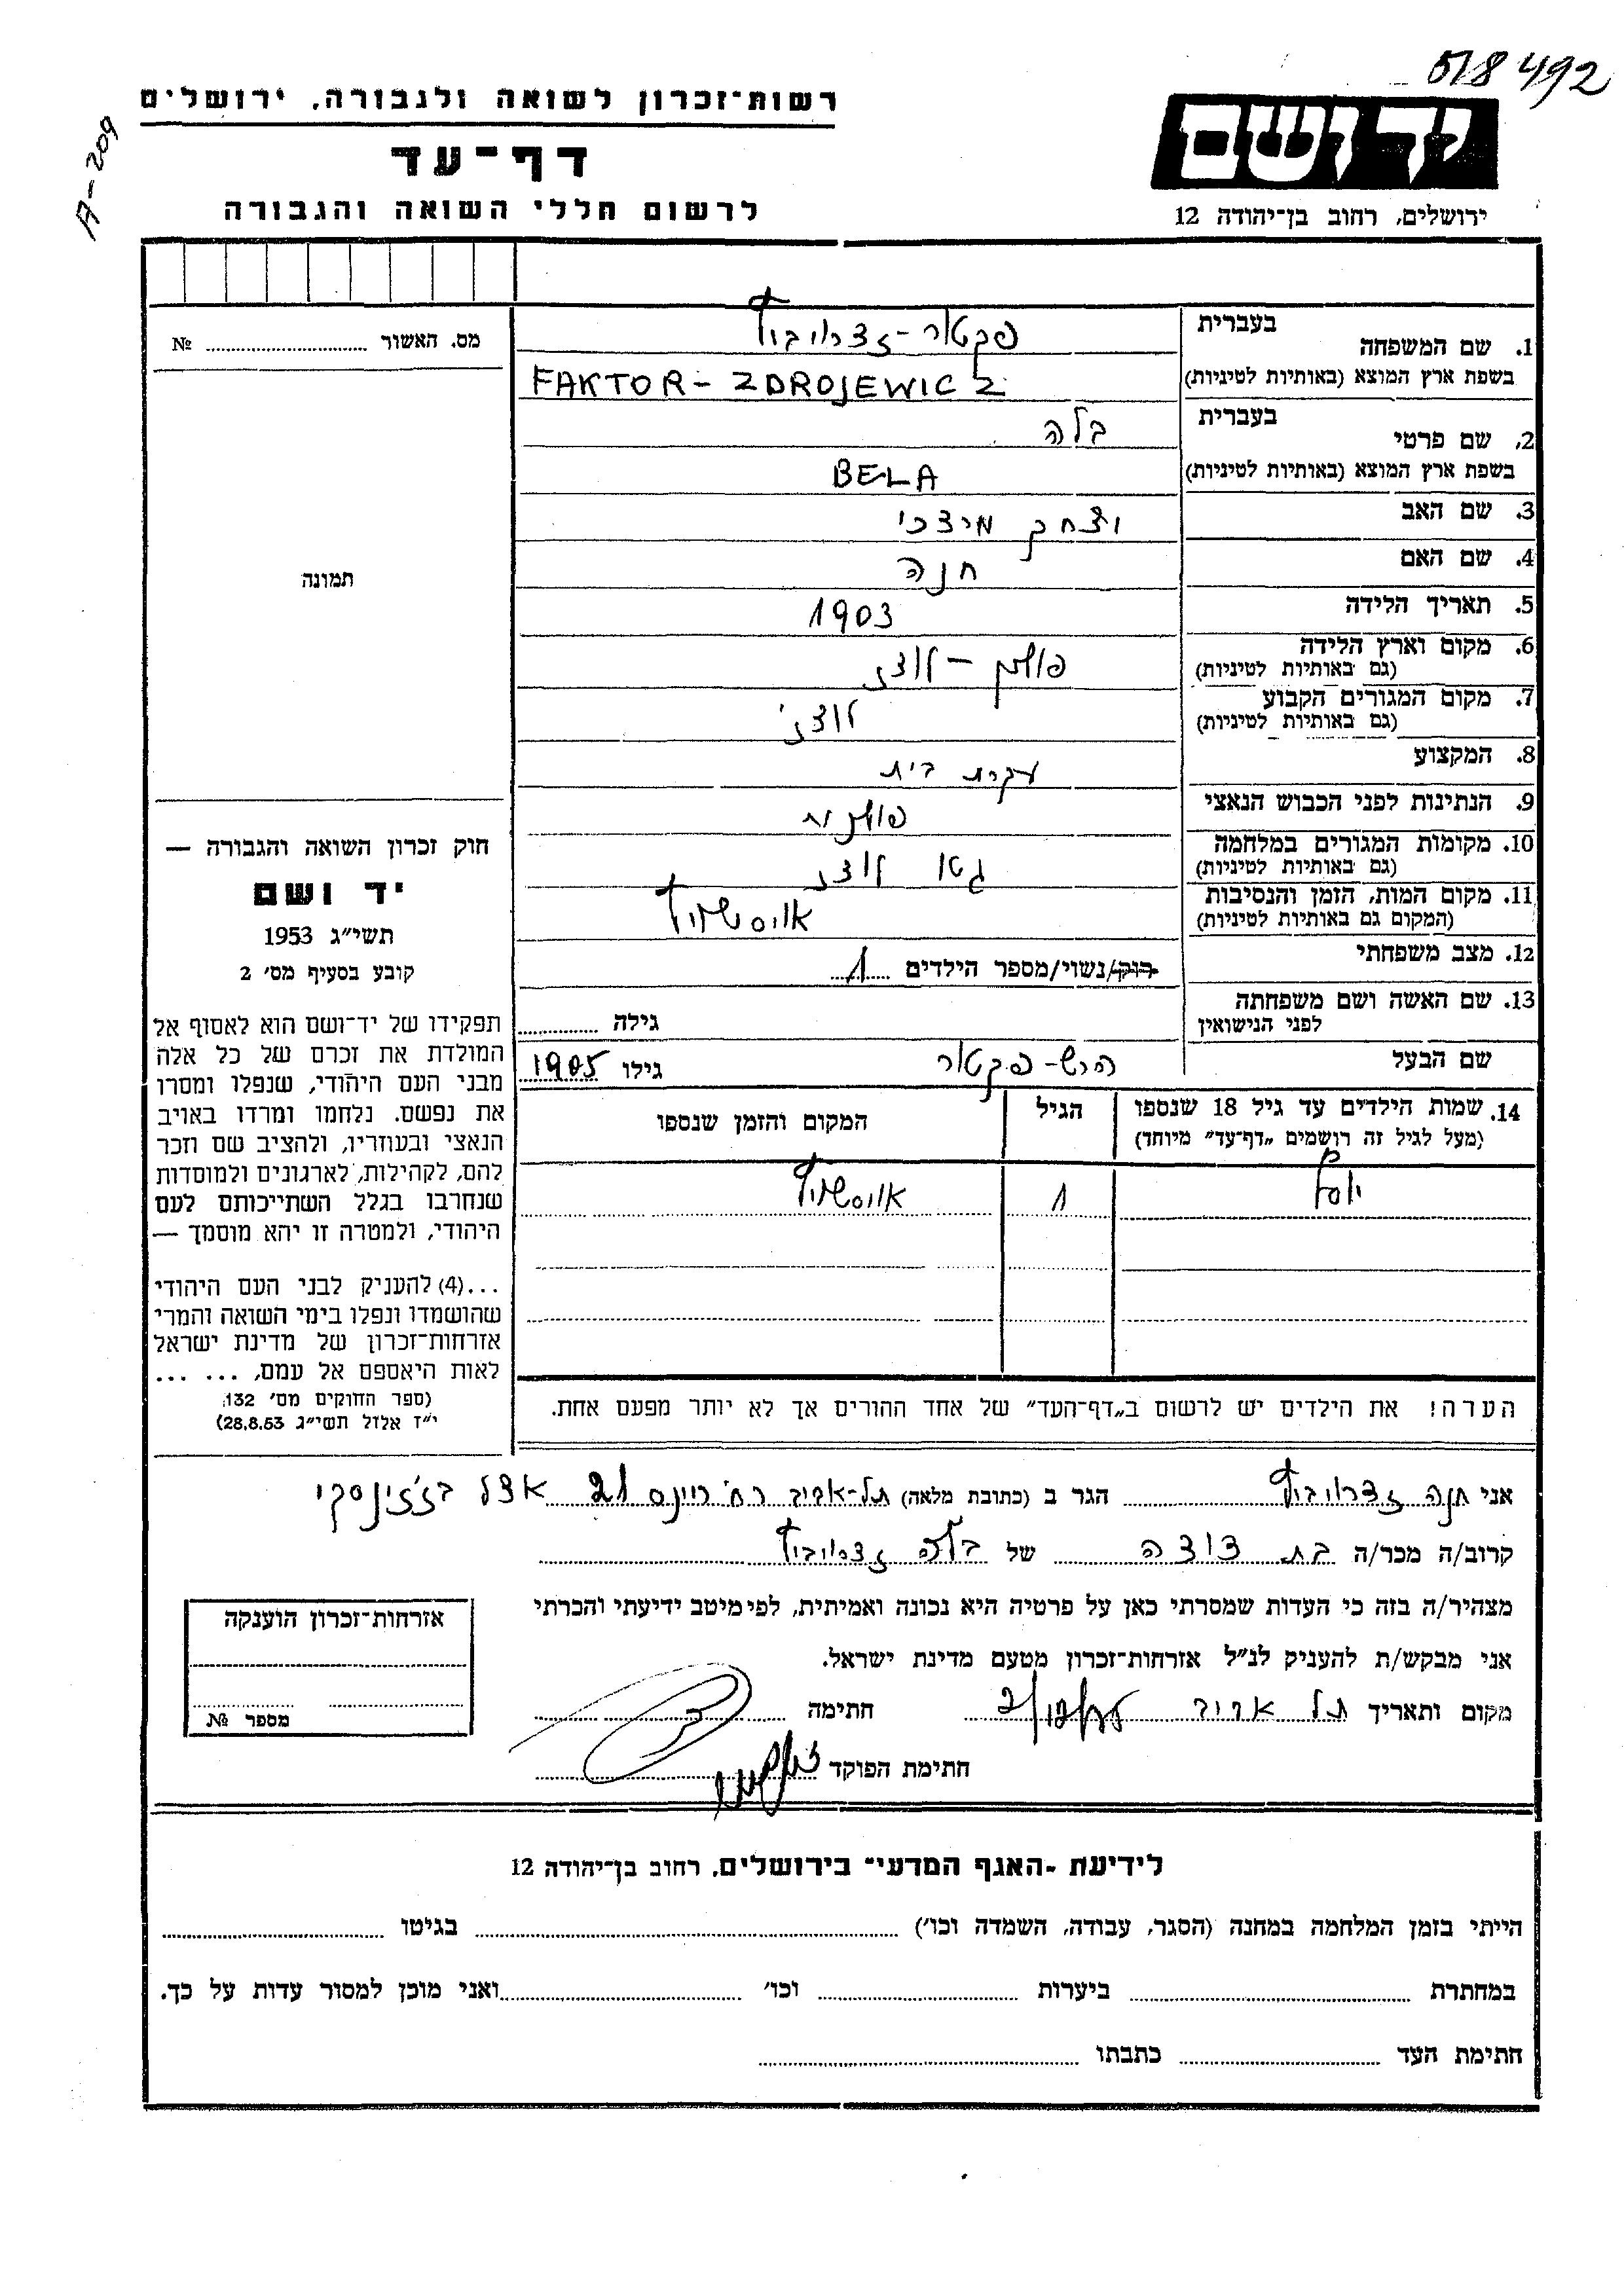 518492
A-209
רשות־זכרון לשואה ולגבורה, ירושלים
דף־עד
לרשום חללי השואה והגבורה
ידושם
ירושלים, רחוב בן־יהודה 12
בעברית
1. שם המשפחה
פקטור-זדרויביץ
בשפת ארץ המוצא (באותיות לטיניות)
FAKTOR-ZDROJEWICZ
בעברית
2. שם פרטי
בלה
בשפת ארץ המוצא (באותיות לטיניות)
BELA
3. שם האב
יצחק מרדכי
4. שם האם
חנה
5. תאריך הלידה
1903
6. מקום וארץ הלידה
(גם באותיות לטיניות)
פולין - לודז
7. מקום המגורים הקבוע
(גם באותיות לטיניות)
לודז'
8. המקצוע
עקרת בית
9. הנתינות לפני הכבוש הנאצי
פולנית
10. מקומות המגורים במלחמה
(גם באותיות לטיניות)
גטו לודז
11. מקום המות, הזמן והנסיבות
(המקום גם באותיות לטיניות)
אויסשויץ
12. מצב משפחתי
רווק/נשוי/מספר הילדים 1
13. שם האשה ושם משפחתה
לפני הנישואין
גילה
שם הבעל
הרש-פקטור
גילו 1905
14. שמות הילדים עד גיל 18 שנספו
(מעל לגיל זה רושמים „דף־עד" מיוחד)
הגיל
המקום והזמן שנספו
יוסף
1
אויסשויץ
הערה! את הילדים יש לרשום ב„דף־העד" של אחד ההורים אך לא יותר מפעם אחת.
מס. האשור № 
תמונה
חוק זכרון השואה והגבורה —
יד ושם
תשי"ג 1953
קובע בסעיף מס' 2
תפקידו של יד־ושם הוא לאסוף אל
המולדת את זכרם של כל אלה
מבני העם היהודי, שנפלו ומסרו
את נפשם. נלחמו ומרדו באויב
הנאצי ובעוזריו, ולהציב שם וזכר
להם, לקהילות, לארגונים ולמוסדות
שנחרבו בגלל השתייכותם לעם
היהודי, ולמטרה זו יהא מוסמך —
...(4) להעניק לבני העם היהודי
שהושמדו ונפלו בימי השואה והמרי
אזרחות־זכרון של מדינת ישראל
לאות היאספם אל עמם, ... ...
(ספר החוקים מס' 132
י"ז אלול תשי"ג 28.8.53)
אני חנה זדרויביץ הגר ב (כתובת מלאה) תל-אביב רח' ריינס 21 אצל
קרוב/ה מכר/ה בת דודה של בלה זדרויביץ
מצהיר/ה בזה כי העדות שמסרתי כאן על פרטיה היא נכונה ואמיתית, לפי מיטב ידיעתי והכרתי
אני מבקש/ת להעניק לנ"ל אזרחות־זכרון מטעם מדינת ישראל.
מקום ותאריך תל אביב חתימה
חתימת הפוקד
אזרחות־זכרון הוענקה
מספר №
לידיעת -האגף המדעי־ בירושלים, רחוב בן־יהודה 12
הייתי בזמן המלחמה במחנה (הסגר, עבודה, השמדה וכו') בגיטו
במחתרת ביערות וכו' ואני מוכן למסור עדות על כך.
חתימת העד כתבתו